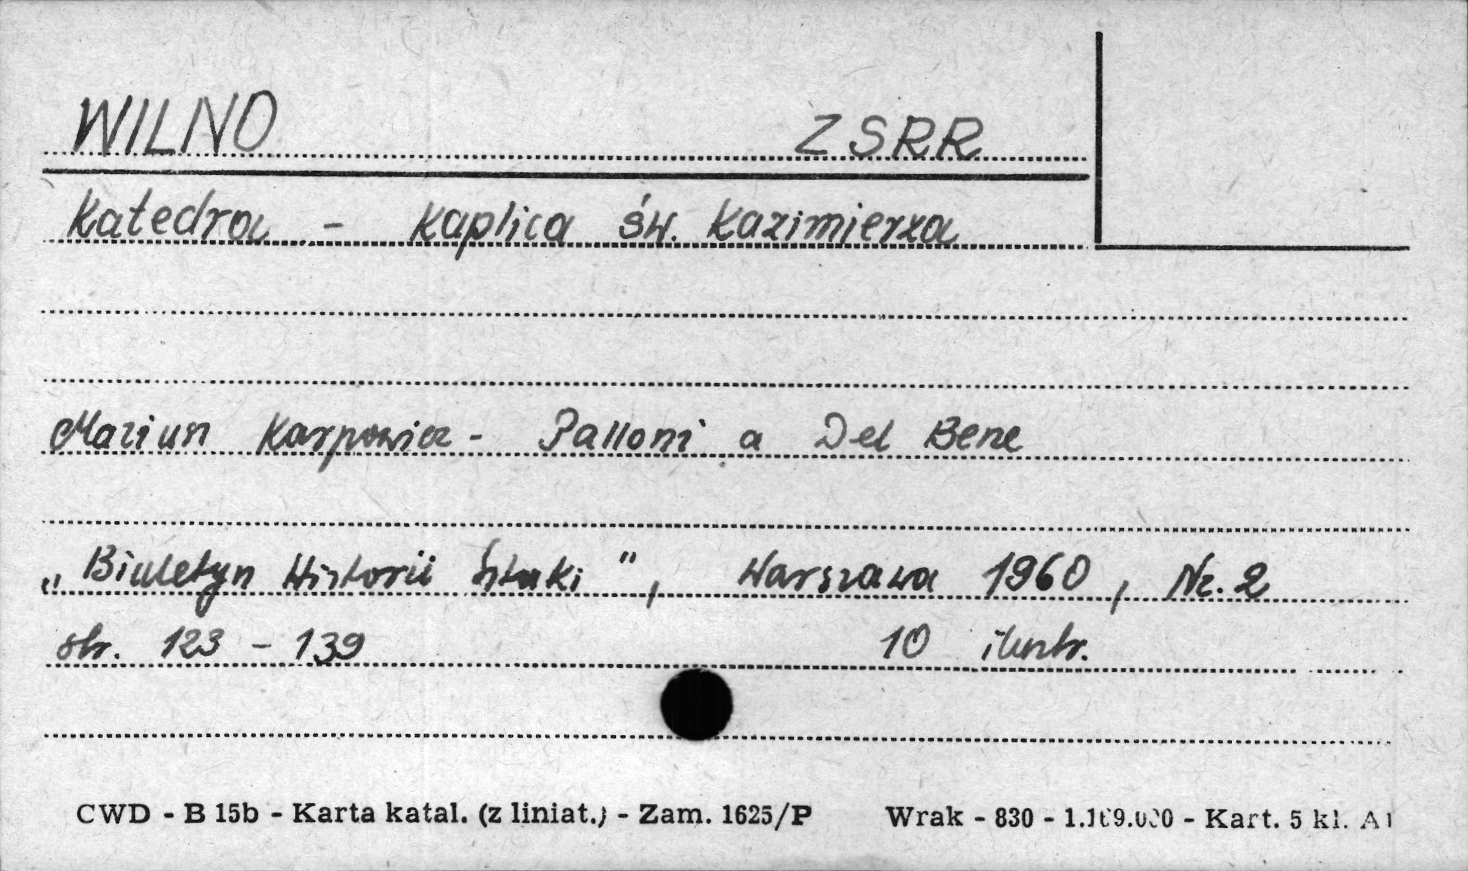 WILNO ZSRR
Katedra - Kaplica św. Kazimierza
Mariun Karpowicz - Palloni a Del Bene
„Biuletyn Historii Sztuki", Warszawa 1960, Nr. 2
str. 123 - 139 10 ilustr.
CWD - B 15b - Karta katal. (z liniat.) - Zam. 1625/P Wrak - 830 - - Kart. 5 kl.